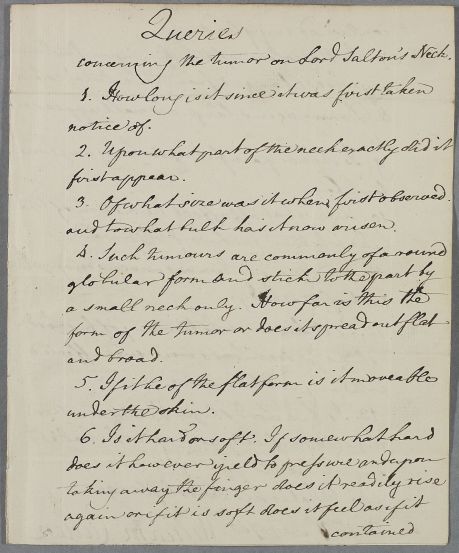 Queries
concerning the tumor on Lord Salton's Neck.
1. How long is it since it was first taken
notice of.
2. Upon what part of the neck exactly did it
first appear.
3. Of what size was it when first observed.
and to what bulk has it now arisen.
4. Such tumours are commonly of a round
globular form and stick to the part by
a small neck only. How far is this the
form of the tumor or does it spread out flat
and broad.
5. If it be of the flat form is it moveable
under the skin.
6. Is it hard or soft. If somewhat hard
does it however yield to pressure and upon
taking away the finger does it readily rise
again or if it is soft does it feel as if it
contained